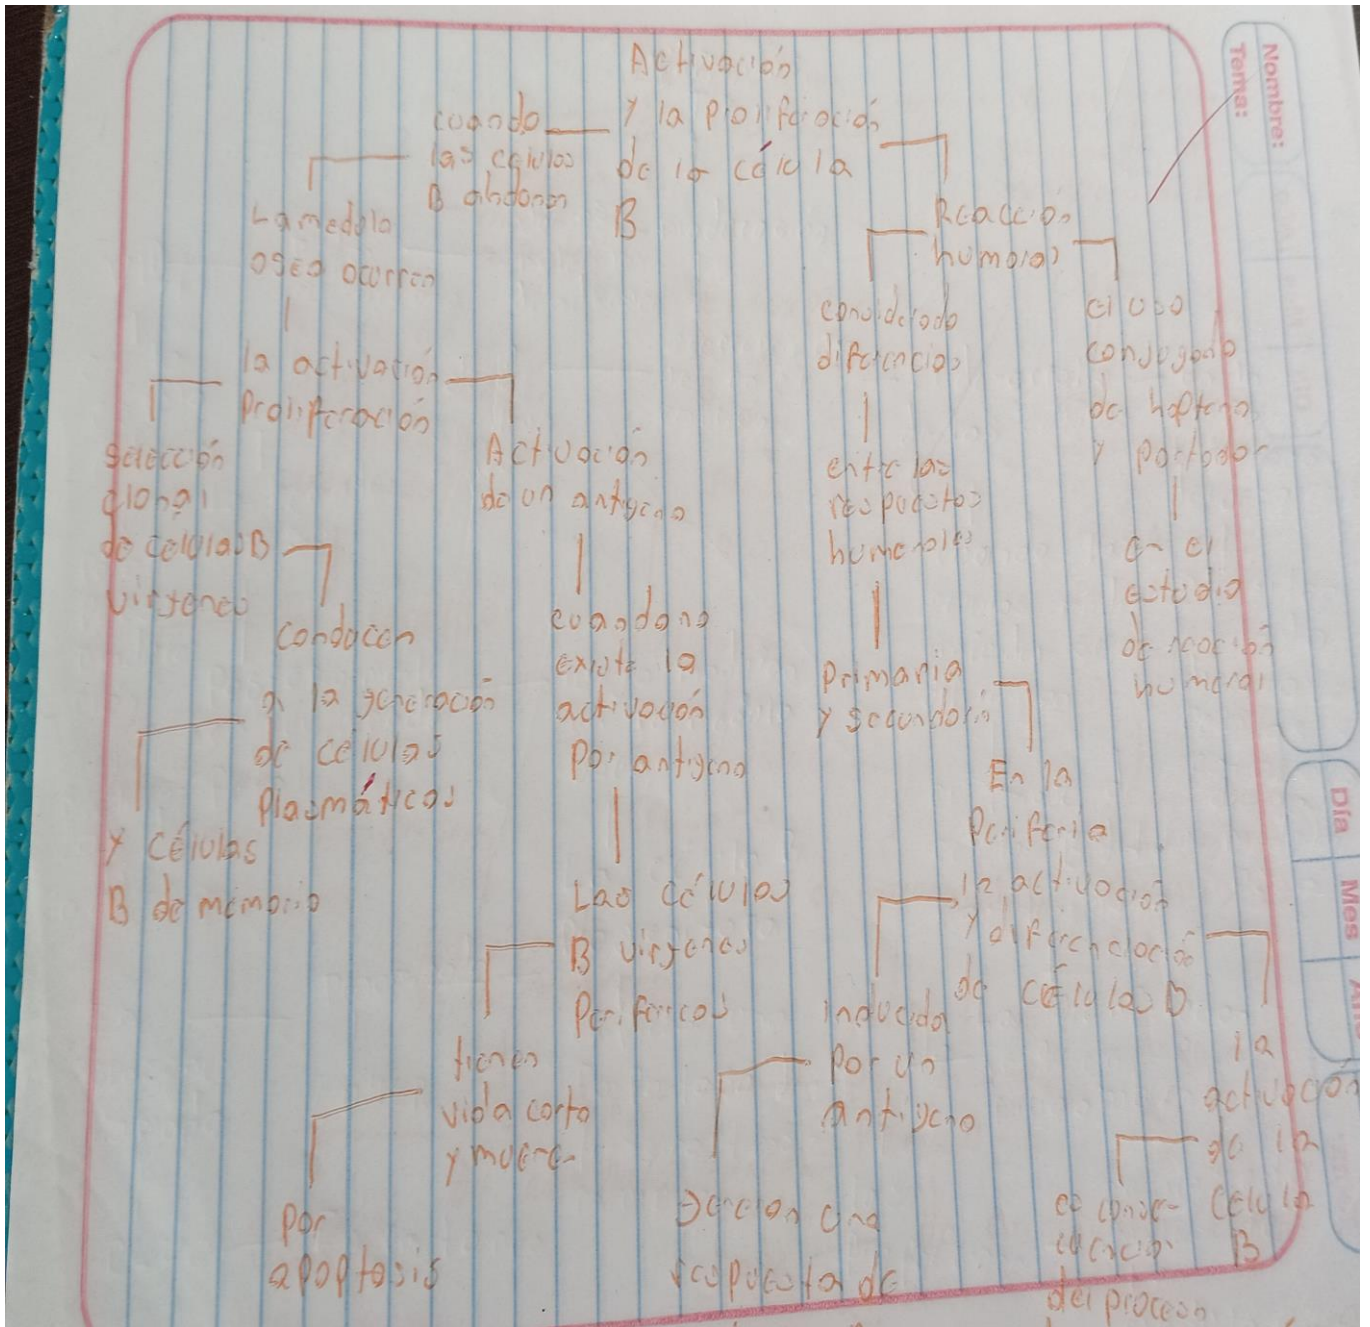 Activación
Y la Proliferación
de la célula
B
cuando
las células
B abdonan
La medola
osea ocurren
la activación
Proliferación
selección
clonal
de celulas B
virgenes
conducen
a la generación
de células
Plasmáticas
Y células
B de memoria
Activación
de un antigeno
cuando no
existe la
activación
Por antigeno
Las células
B virgenes
Perifericos
tienen
vida corta
y muere
Por
apoptosis
Reacción
humoral
considerado
diferencias
entre las
respuestas
humorales
Primaria
y secundaria
En la
Periferia
la activación
y diferenciación
de células B
inducida
Por un
antigeno
una
respuesta de
la
activación
de la
celula
B
es conse-
cuencia
del proceso
el uso
conjugado
de hapteno
y portador
en el
estudio
de reacción
humoral
Nombre:
Tema:
Día
Mes
Año